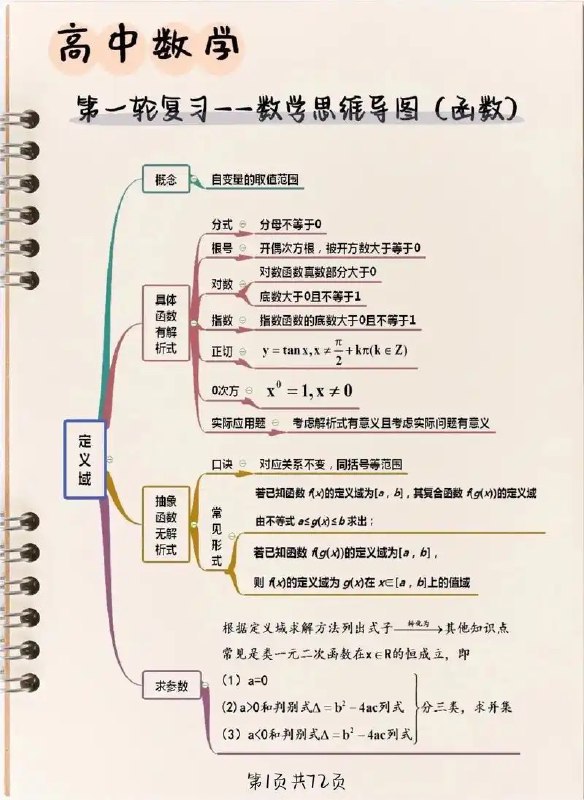 高中数学
第一轮复习--数学思维导图（函数）
定义域
概念
自变量的取值范围
具体函数有解析式
分式
分母不等于0
根号
开偶次方根，被开方数大于等于0
对数
对数函数真数部分大于0
底数大于0且不等于1
指数
指数函数的底数大于0且不等于1
正切
y=tanx,x≠π/2+kπ(k∈Z)
0次方
x⁰=1,x≠0
实际应用题
考虑解析式有意义且考虑实际问题有意义
抽象函数无解析式
口诀
对应关系不变，同括号等范围
常见形式
若已知函数 f(x)的定义域为[a，b]，其复合函数 f(g(x))的定义域
由不等式 a≤g(x)≤b 求出；
若已知函数 f(g(x))的定义域为[a，b]，
则 f(x)的定义域为 g(x)在 x∈[a，b]上的值域
求参数
根据定义域求解方法列出式子 转化为 其他知识点
常见是类一元二次函数在x∈R的恒成立，即
（1）a=0
(2)a>0和判别式Δ=b²-4ac列式
（3）a<0和判别式Δ=b²-4ac列式
分三类，求并集
第1页共72页